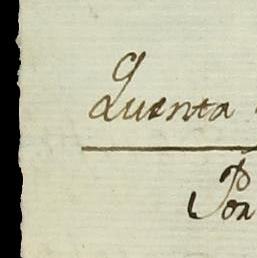 Quenta
Por